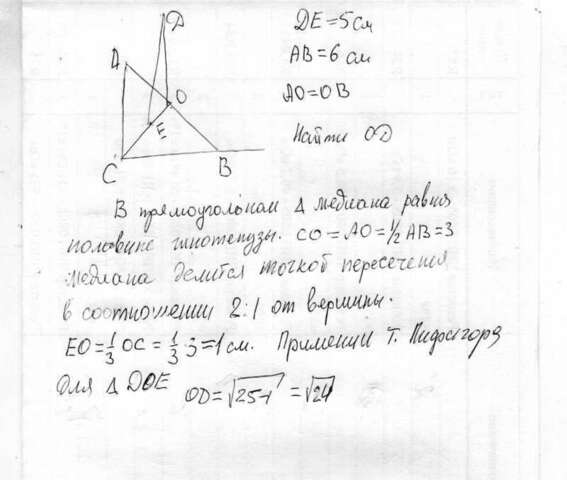 D
A
O
E
C
B
DE=5см
AB=6 см
AO=OB
Найти OD
В прямоугольном Δ медиана равна
половине гипотенузы. CO=AO=1/2 AB=3
Медиана делится точкой пересечения
в соотношении 2:1 от вершины.
EO=1/3 OC=1/3·3=1см. Применим т. Пифагора
для Δ DOE OD=√25-1=√24